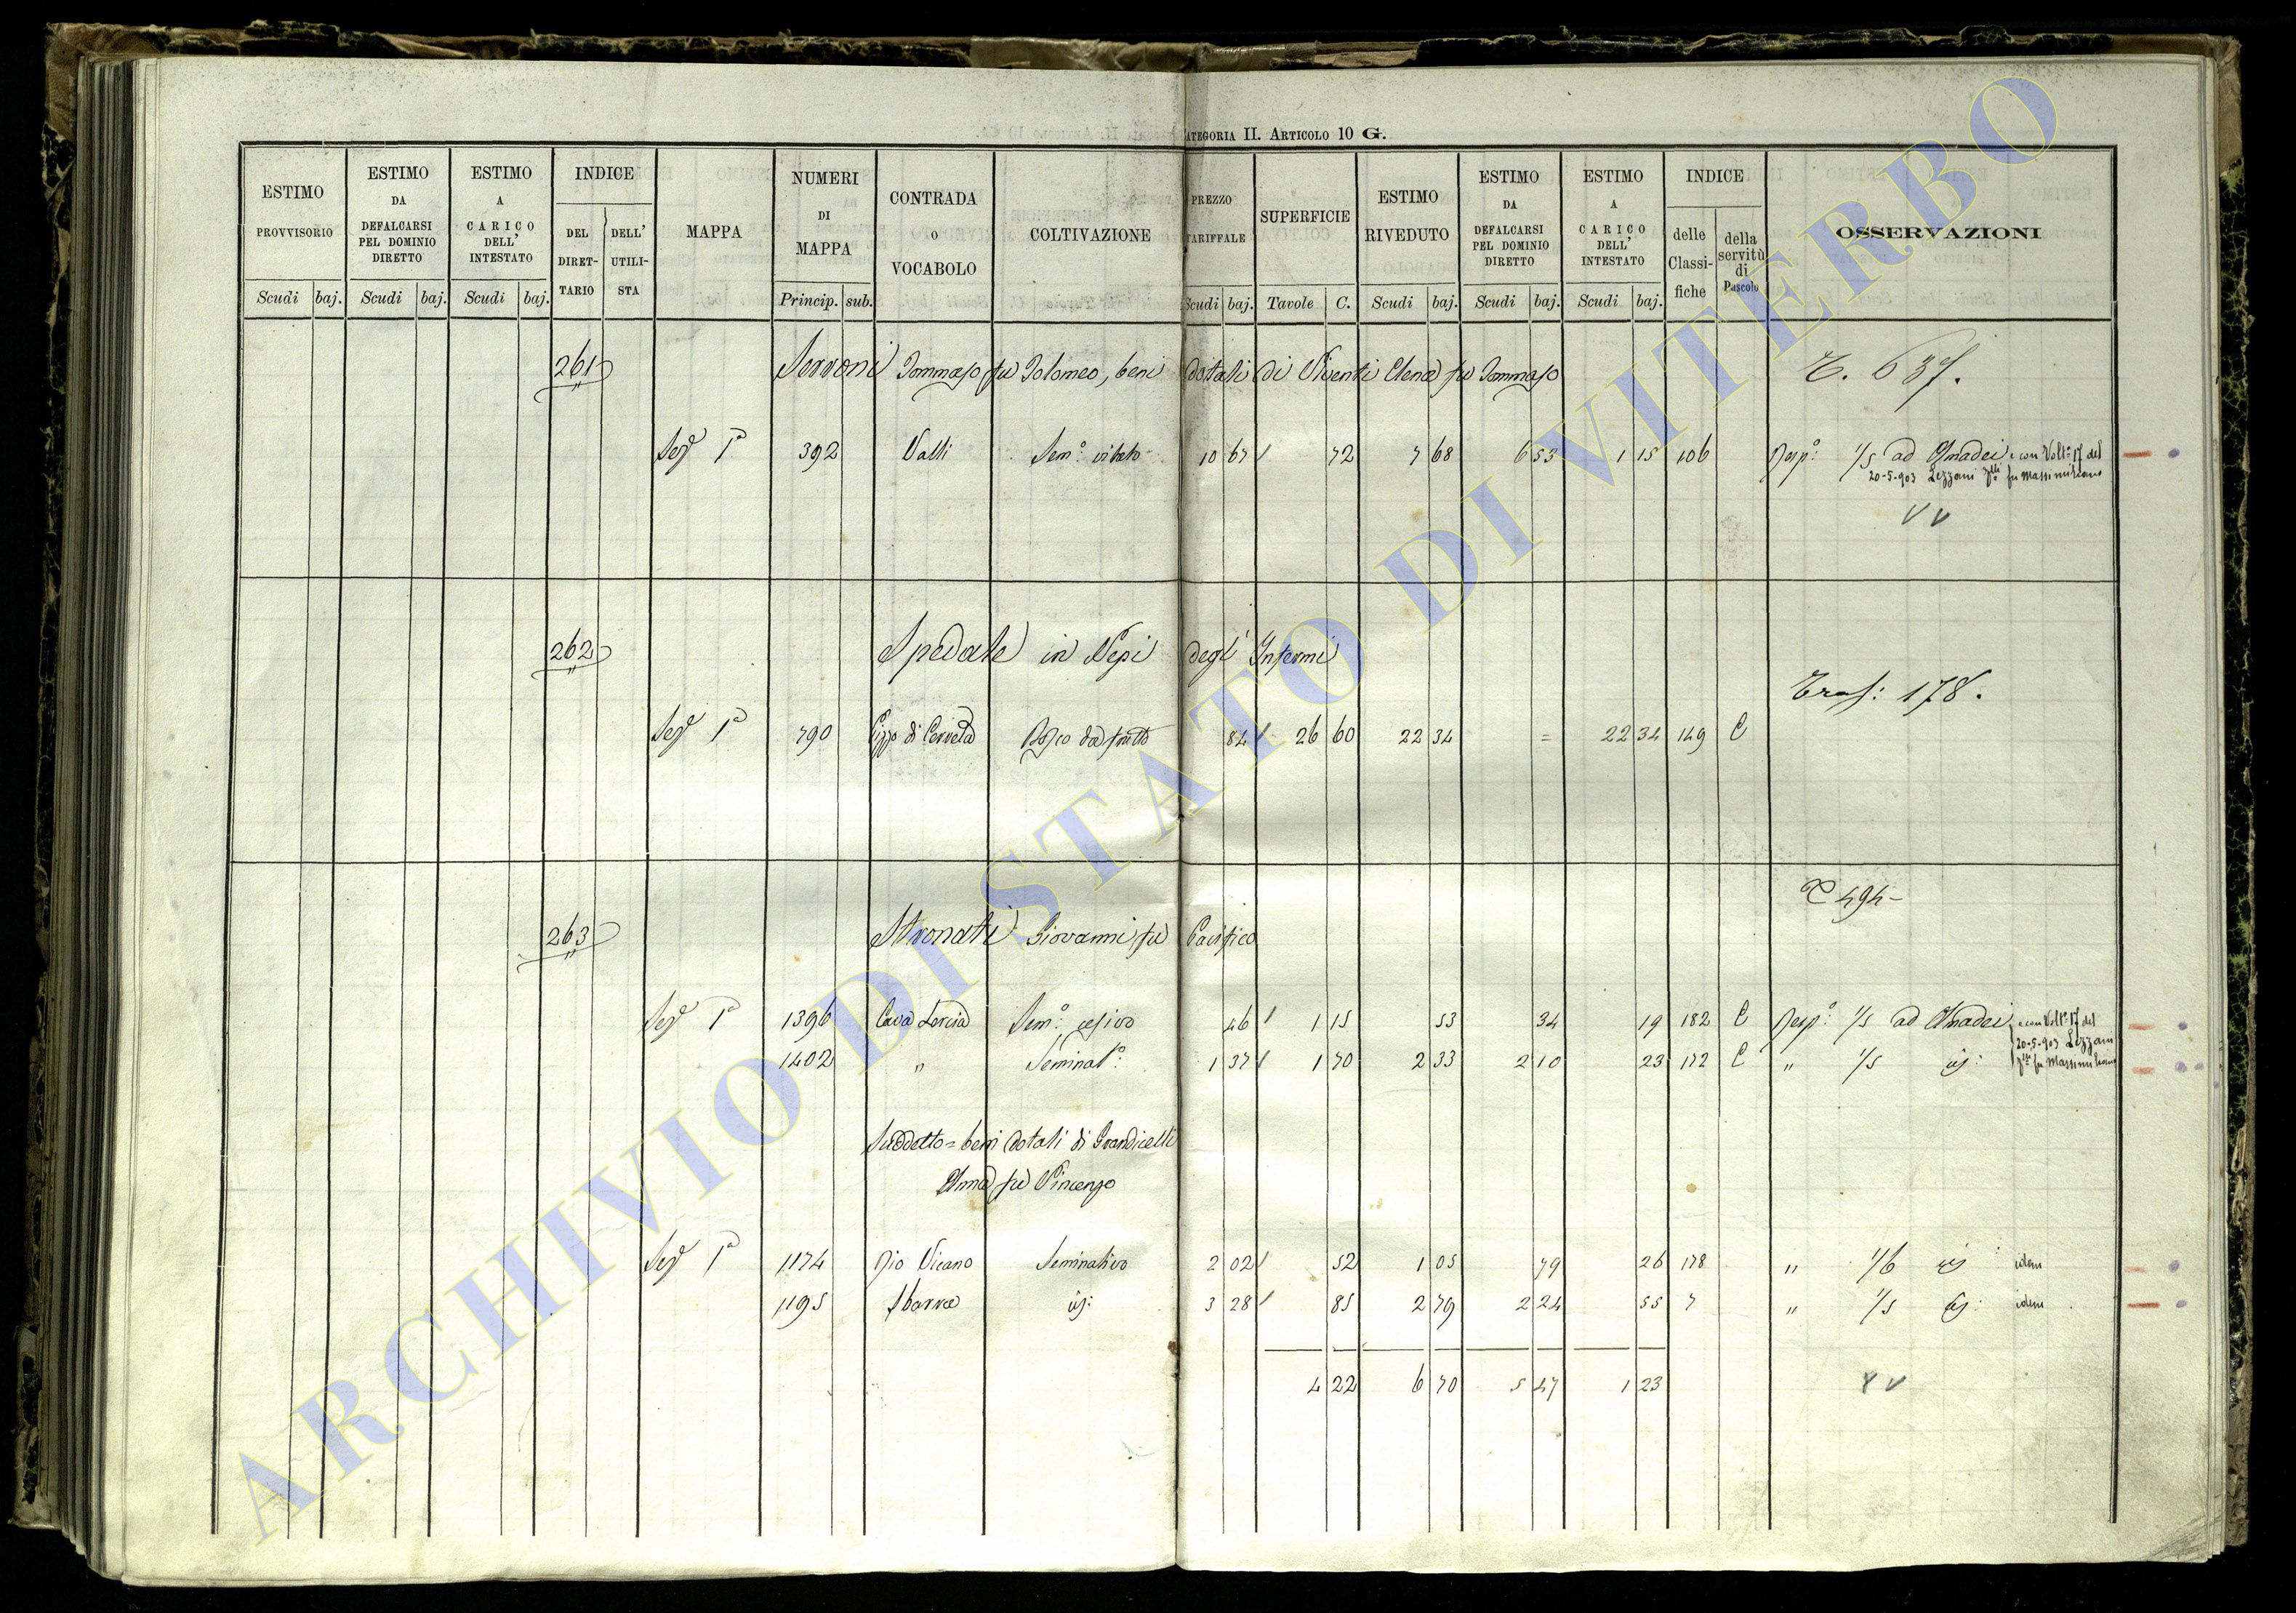 ATEGORIA II. ARTICOLO 10 G.
ESTIMO PROVVISORIO
ESTIMO DA DEFALCARSI PEL DOMINIO DIRETTO
ESTIMO A CARICO DELL' INTESTATO
INDICE
DEL DIRET-TARIO
DELL' UTILI-STA
MAPPA
NUMERI DI MAPPA
CONTRADA O VOCABOLO
COLTIVAZIONE
PREZZO TARIFFALE
SUPERFICIE
ESTIMO RIVEDUTO
ESTIMO DA DEFALCARSI PEL DOMINIO DIRETTO
ESTIMO A CARICO DELL' INTESTATO
INDICE
delle Classi-fiche
della servitù di Pascolo
OSSERVAZIONI
Scudi baj. Scudi baj. Scudi baj. Princip. sub. Scudi baj. Tavole C. Scudi baj. Scudi baj. Scudi baj.
261 Serroni Tommaso fu Tolomeo, beni dotali di Viventi Elena fu Tommaso T. 637.
Sez.e 1a 392 Valli Sem.o vitato 10 67 72 7 68 6 53 1 15 106 Risp.o 1/5 ad Amadei e con Volt.a 17 del
20-5-903 Lezzani F.lli fu Massimiliano
V V
262 Spedale in Nepi degli Infermi
Tras: 178.
Sez.e 1a 790 Pizzo di Cerreta Bosco da frutto 84 26 60 22 34 = 22 34 149 C
T 494-
263 Stronati Giovanni fu Pacifico
Sez.e 1a 1396 Cava Lercia Sem.o olivo 46 1 15 53 34 19 182 C Risp.o 1/5 ad Amadei e con Volt.a 17 del
20-5-903 Lezzani
1402 " Seminat.o 1 37 1 70 2 33 2 10 23 172 C " 1/5 id: F.lli fu Massimiliano
Suddetto = beni dotali di Grandicelli
Anna fu Vincenzo
Sez.e 1a 1174 Rio Vicano Seminativo 2 02 52 1 05 79 26 178 " 1/6 id idem
1195 Sbarra id: 3 28 85 2 79 2 24 55 7 " 1/5 id: idem
4 22 6 70 5 47 1 23 V V
ARCHIVIO DI STATO DI VITERBO